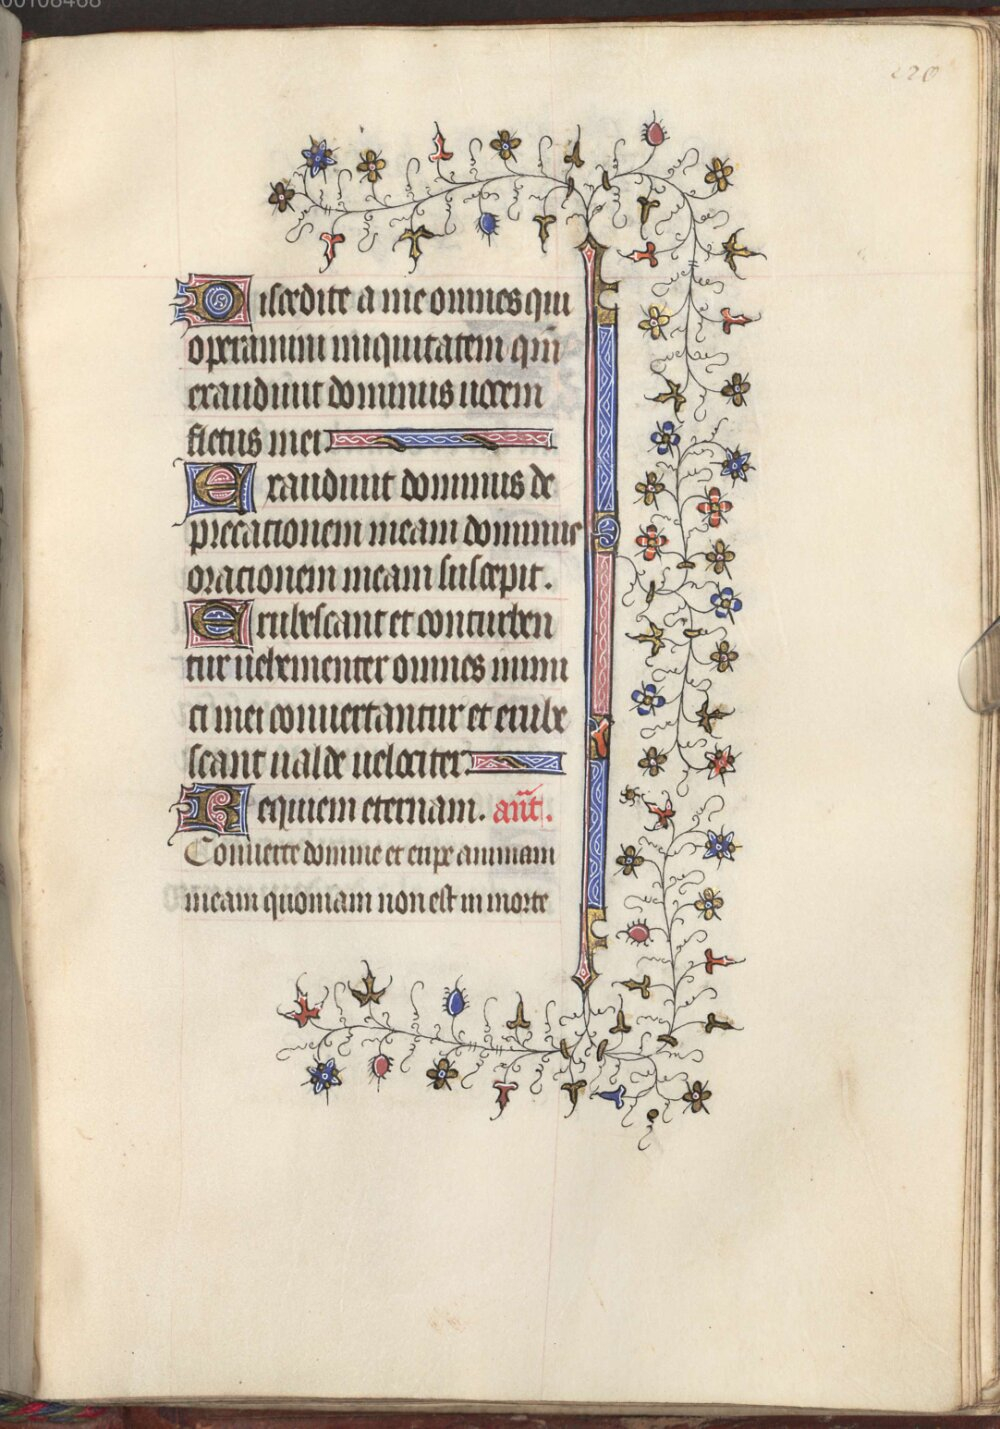 00108468
220
Discedite a me omnes qui
operamini iniquitatem qm̅
exaudiuit dominus uocem
fletus mei
Exaudiuit dominus de
precationem meam dominus
orationem meam suscepit.
Erubescant et conturben
tur uehementer omnes inimi
ci mei conuertantur et erube
scant ualde uelociter
Requiem eternam. an̅t.
Conuerte domine et eripe animam
meam quoniam non est in morte